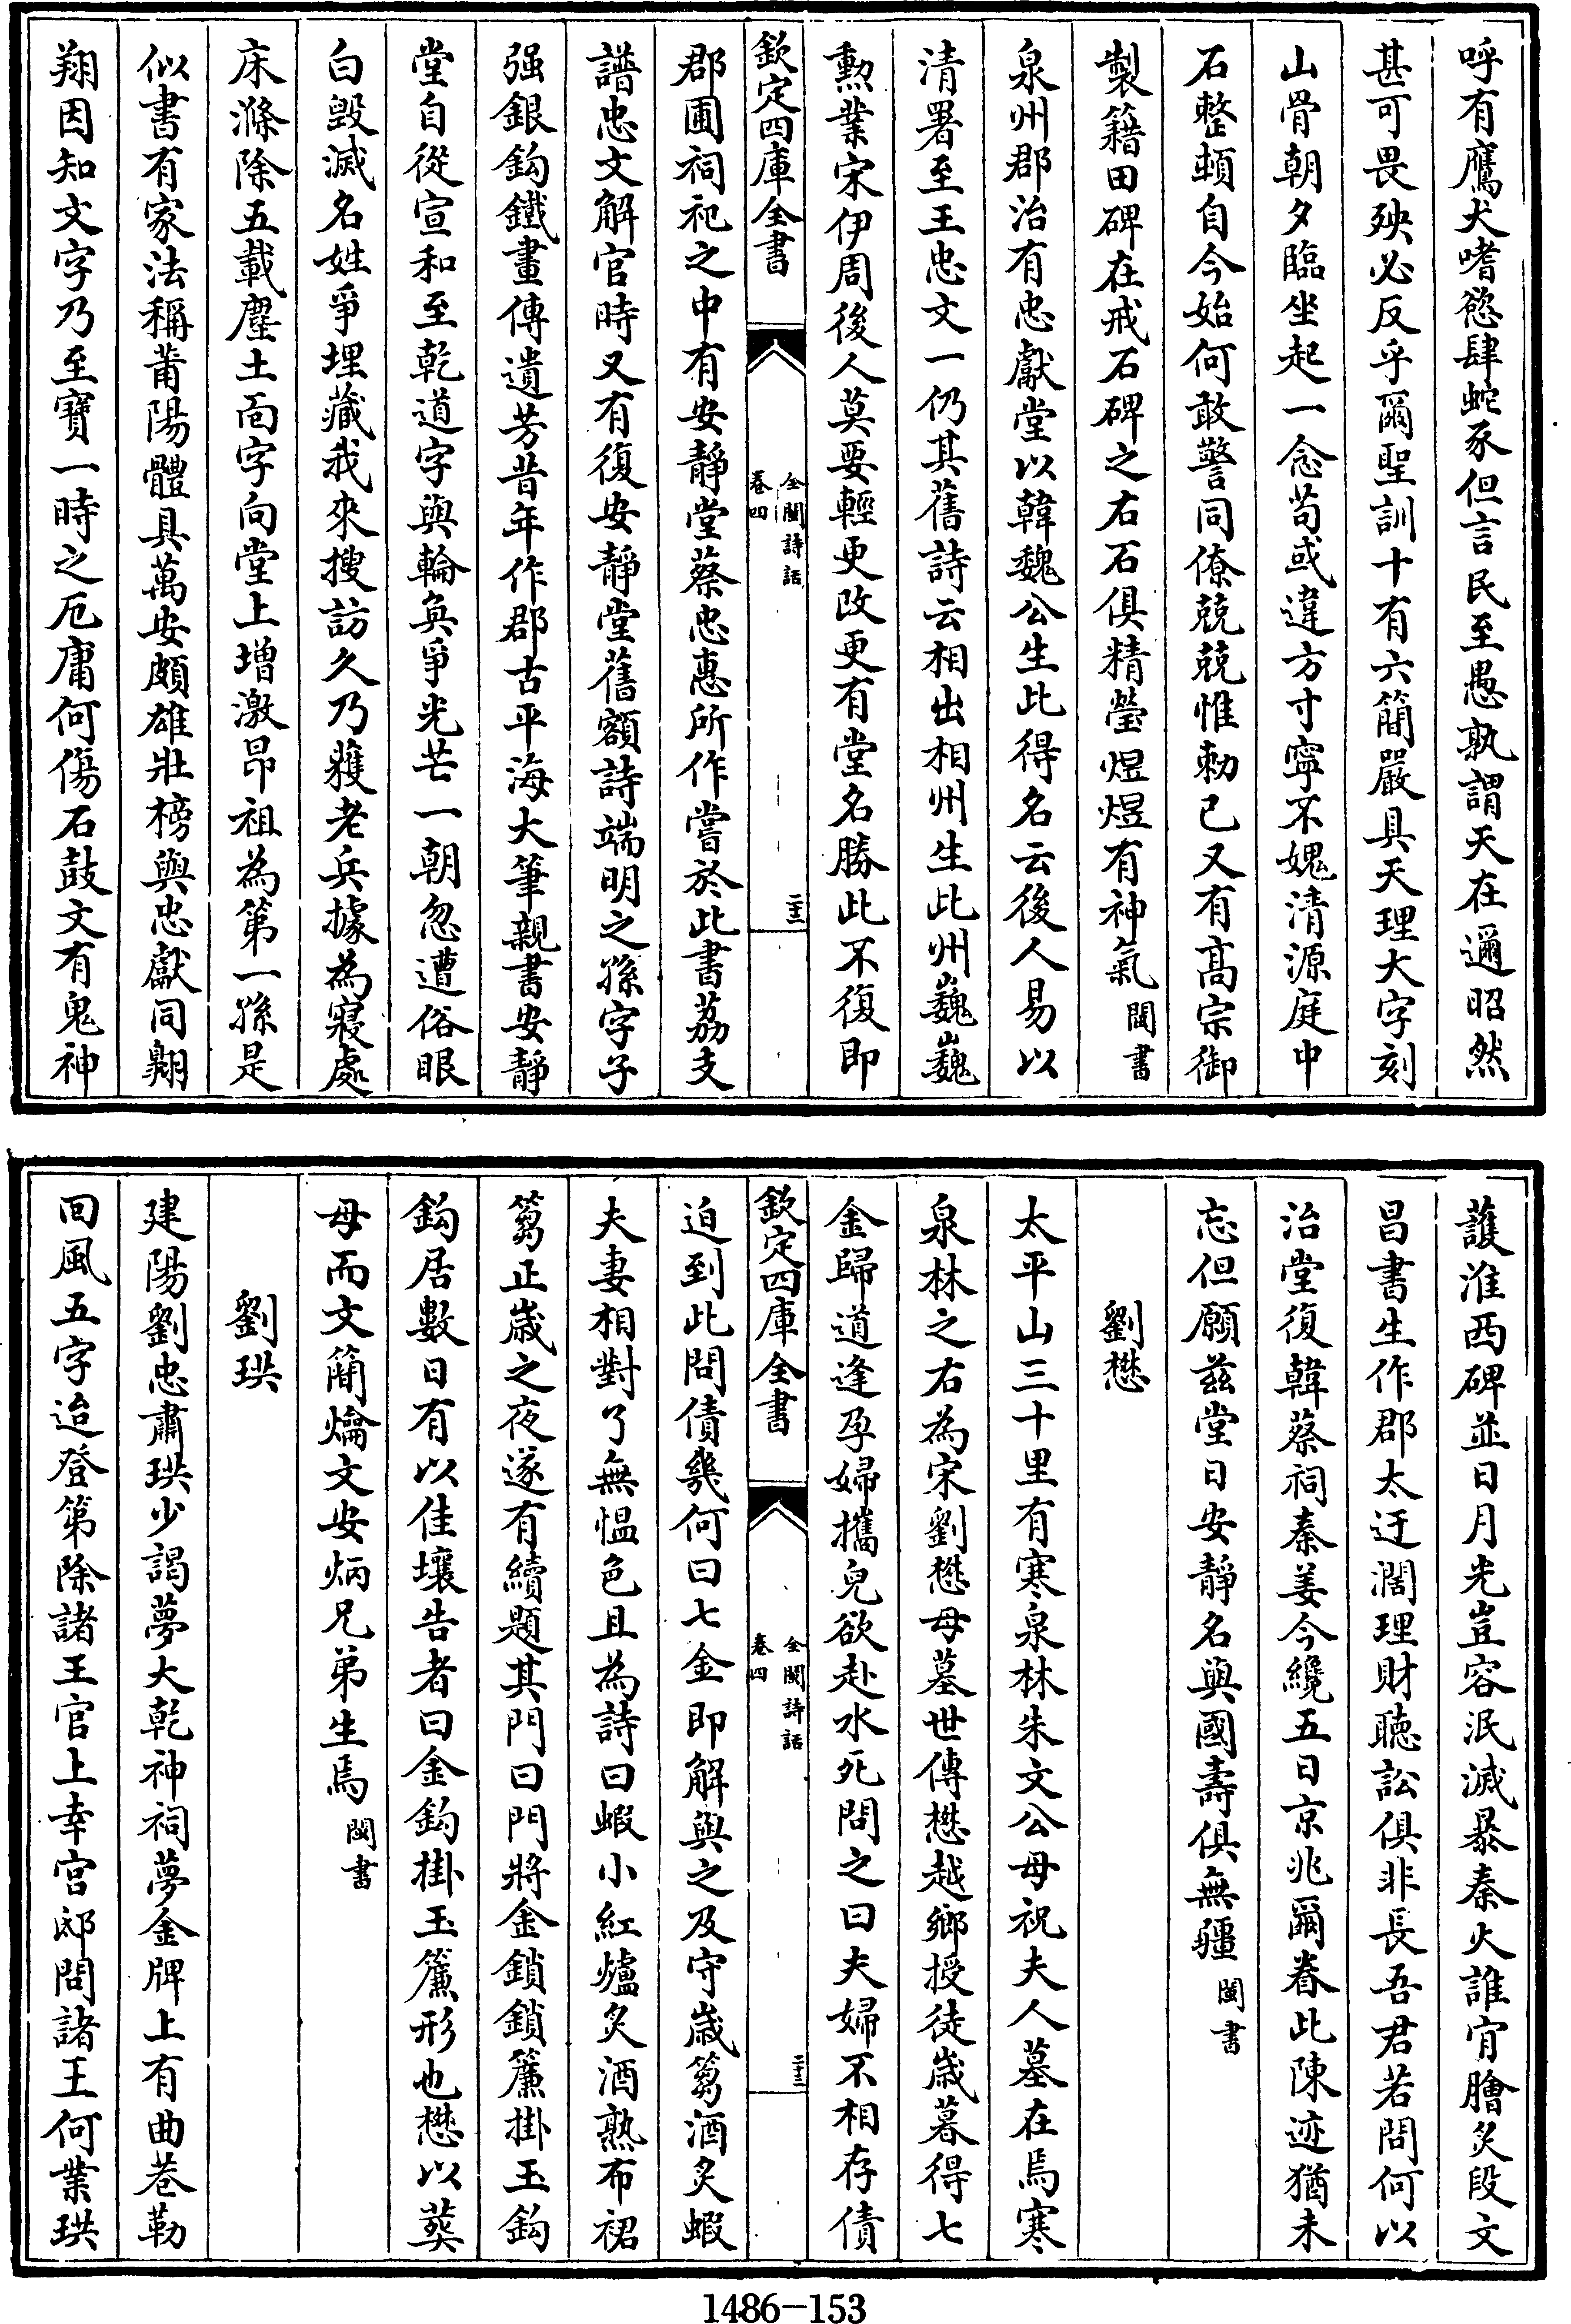 呼有鷹犬嗜慾肆蛇豕但言民至愚孰謂天在邇昭然
甚可畏殃必反乎爾聖訓十有六簡嚴具天理大字刻
山骨朝夕臨坐起一念苟或違方寸寧不媿清源庭中
石整頓自今始何敢警同僚兢兢惟勅已又有高宗御
製籍田碑在戒石碑之右石俱精瑩煜煜有神氣閩書
泉州郡治有忠獻堂以韓魏公生此得名云後人易以
清署至王忠文一仍其舊詩云相出相州生此州巍巍
勲業宋伊周後人莫要輕更改更有堂名勝此不復即
欽定四庫全書
全閩詩話
卷四
二十二
郡圃祠祀之中有安靜堂蔡忠惠所作嘗於此書荔支
譜忠文解官時又有復安靜堂舊額詩端明之孫字子
强銀鈎鐵畫傳遺芳昔年作郡古平海大筆親書安靜
堂自從宣和至乾道字與輪奐爭光芒一朝忽遭俗眼
白毀滅名姓爭埋藏我來搜訪久乃獲老兵據為寢處
床滌除五載塵土面字向堂上增激昂祖為第一孫是
似書有家法稱莆陽體具萬安頗雄壯榜與忠獻同翺
翔因知文字乃至寶一時之厄庸何傷石鼓文有鬼神
護淮西碑並日月光豈容泯滅暴秦火誰肯膾炙段文
昌書生作郡太迂濶理財聽訟俱非長吾君若問何以
治堂復韓蔡祠秦姜今纔五日京兆爾眷此陳迹猶未
忘但願兹堂日安靜名與國壽俱無疆閩書
劉懋
太平山三十里有寒泉林朱文公母祝夫人墓在焉寒
泉林之右為宋劉懋母墓世傳懋越鄉授徒歲暮得七
金歸道逢孕婦攜兒欲赴水死問之曰夫婦不相存債
欽定四庫全書
全閩詩話
卷四
二十三
迫到此問債幾何曰七金即解與之及守歲蒭酒炙蝦
夫妻相對了無愠色且為詩曰蝦小紅爐炙酒熟布裙
蒭正歲之夜遂有續題其門曰門將金鎖鎖簾掛玉鈎
鈎居數日有以佳壤告者曰金鈎掛玉簾形也懋以葬
母而文簡爚文安炳兄弟生焉閩書
劉珙
建陽劉忠肅珙少謁夢大乾神祠夢金牌上有曲巷勒
回風五字迨登第除諸王官上幸宫邸問諸王何業珙
1486-153